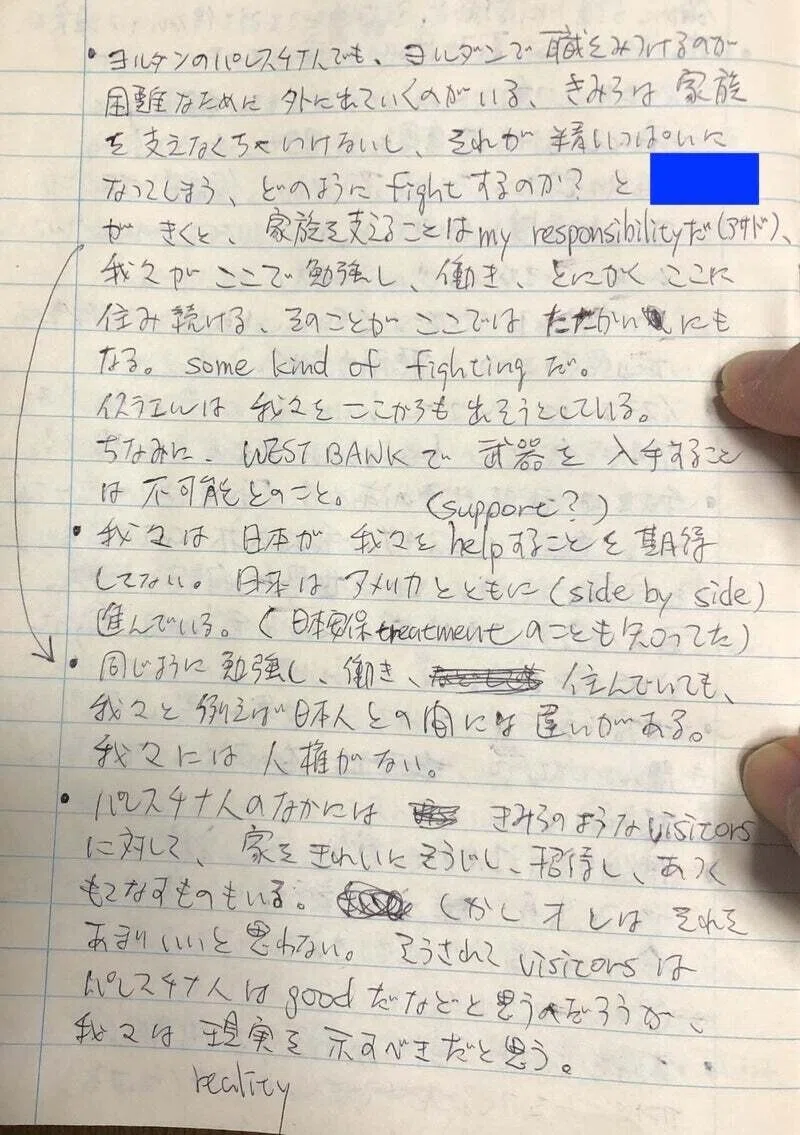 ・ヨルダンのパレスチナ人でも、ヨルダンで職をみつけるのが
困難なために外に出ていくのがいる、きみらは家族
を支えなくちゃいけないし、それが精いっぱいに
なってしまう、どのようにfightするのか？と
がきくと、家族を支えることはmy responsibilityだ(アサド)、
我々がここで勉強し、働き、とにかくここに
住み続ける、そのことがここではたたかいにも
なる。some kind of fightingだ。
イスラエルは我々をここからも出そうとしている。
ちなみに、WEST BANKで武器を入手すること
は不可能とのこと。
(support?)
・我々は日本が我々をhelpすることを期待
してない。日本はアメリカとともに(side by side)
進んでいる。(日本安保treatmentのことも知ってた)
・同じように勉強し、働き、住んでいても、
我々と例えば日本人との間には違いがある。
我々には人権がない。
・パレスチナ人のなかにはきみらのようなvisitors
に対して、家をきれいにそうじし、招待し、あつく
もてなすものもいる。しかしオレはそれを
あまりいいと思わない。そうされてvisitorsは
パレスチナ人はgoodだなどと思うだろうが、
我々は現実を示すべきだと思う。
reality